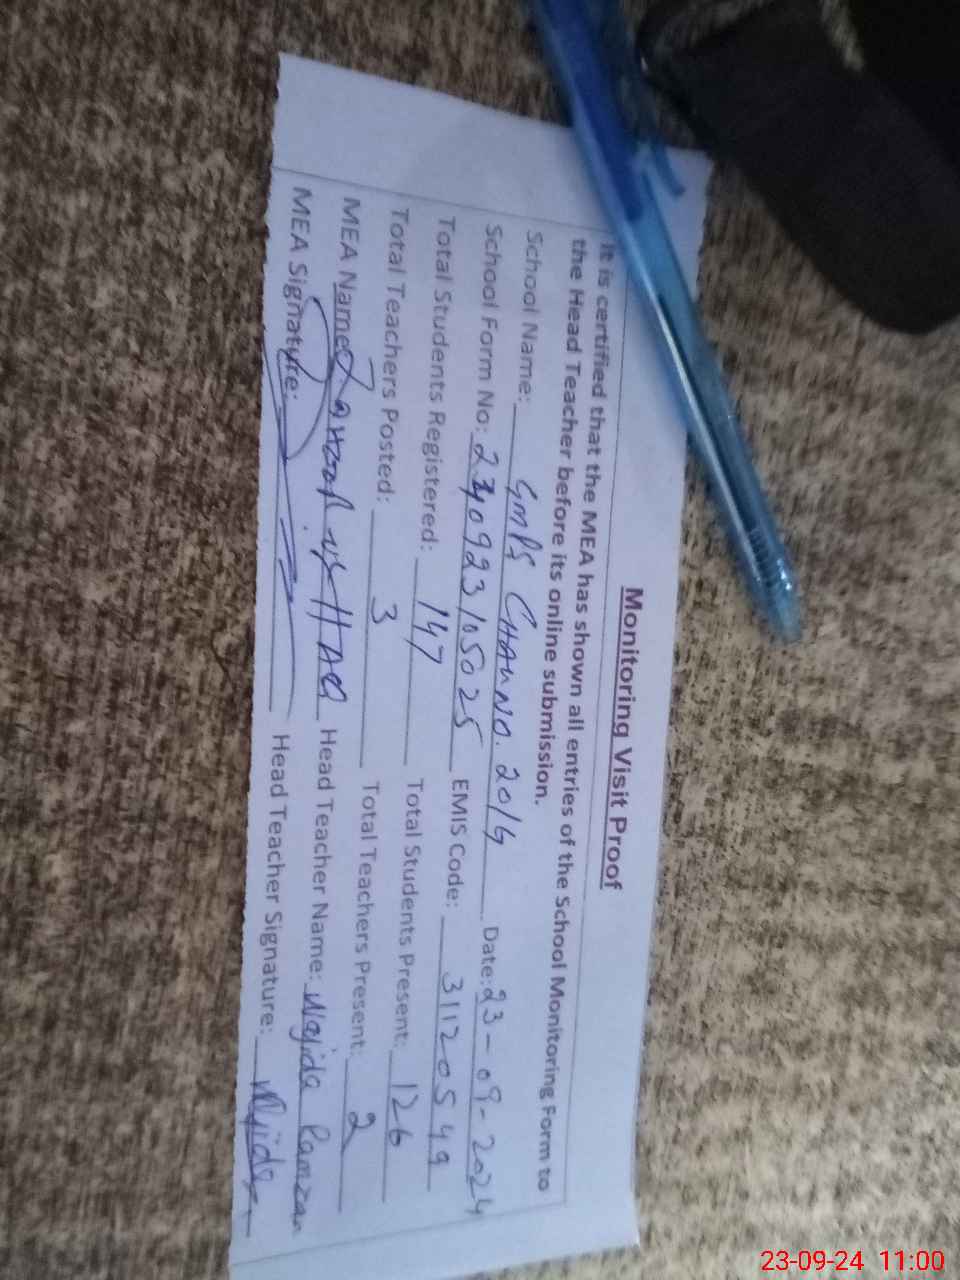 Monitoring Visit Proof
It is certified that the MEA has shown all entries of the School Monitoring Form to
the Head Teacher before its online submission.
School Name: GMPS CHAK NO. 201G Date: 23-09-2024
School Form No: 2340923105025 EMIS Code: 31120549
Total Students Registered: 147 Total Students Present: 126
Total Teachers Posted: 3 Total Teachers Present: 2
MEA Name: Head Teacher Name: Wajida Ramzan
MEA Signature: Head Teacher Signature: Wajida
23-09-24 11:00